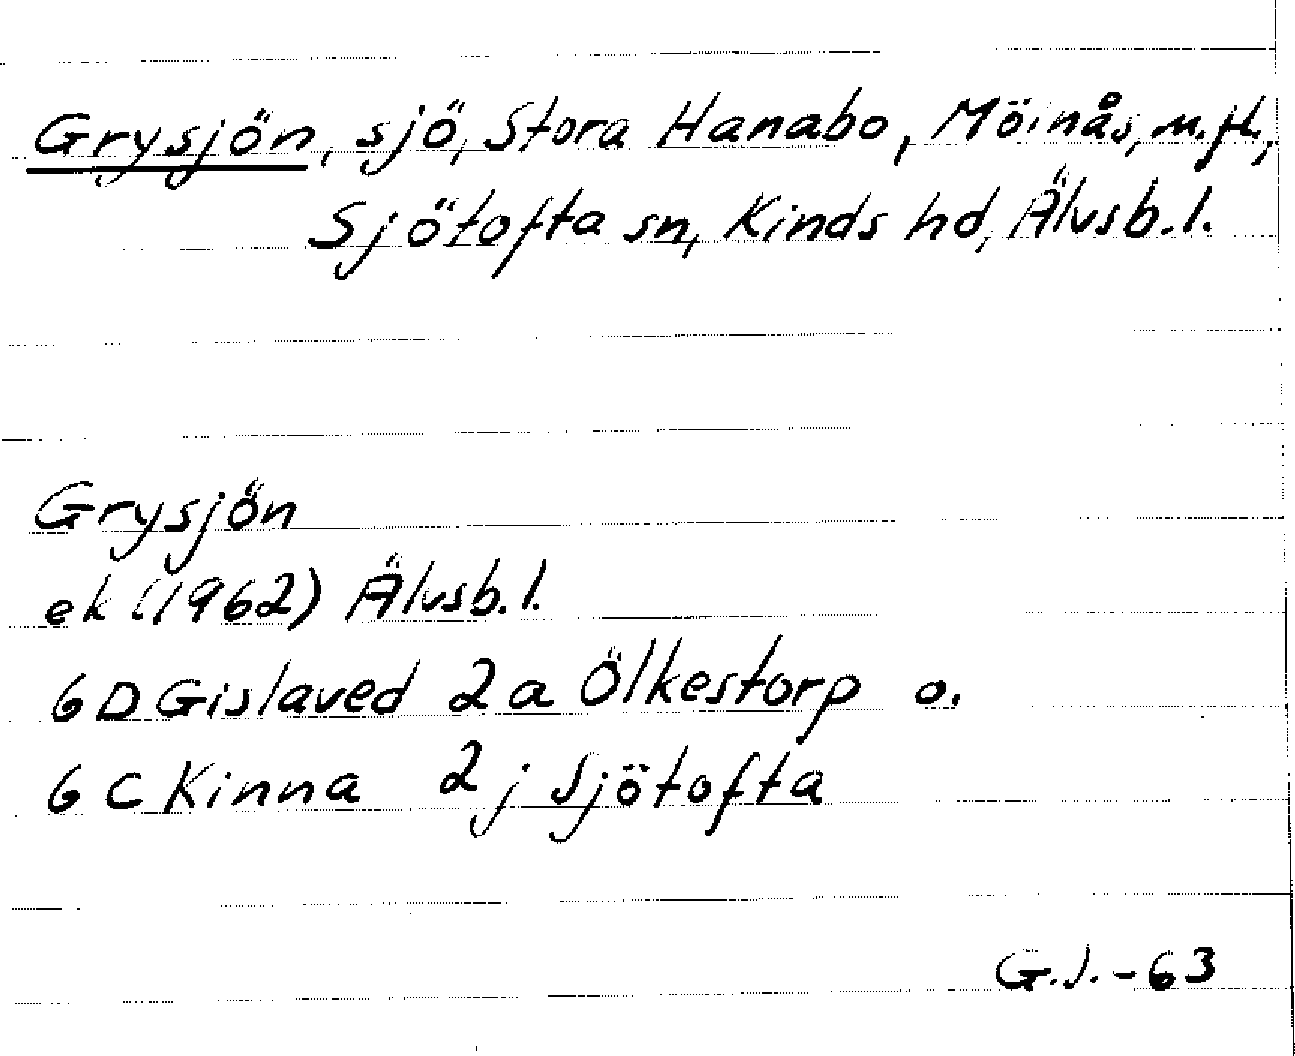 Grysjön, sjö, Stora Hanabo, Möinås, m.fl.,
Sjötofta sn, Kinds hd, Älvsb.l.
Grysjön
ek (1962) Älvsb.l.
6D Gislaved 2a Ölkestorp o.
6C Kinna 2j Sjötofta
G.J.-63